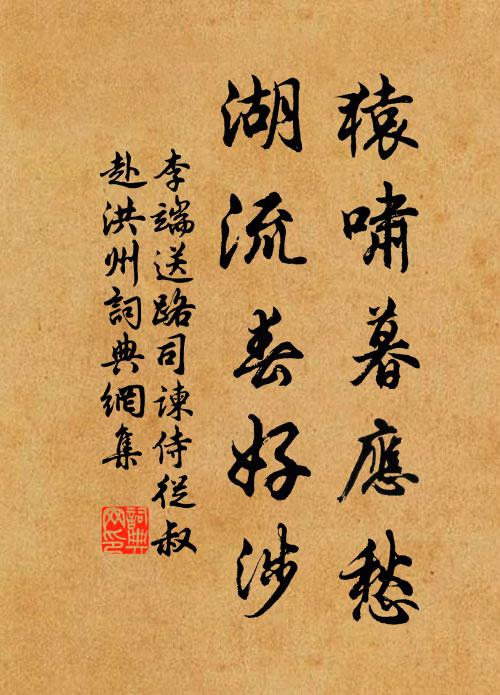 猿嘯暮應愁
湖流春好涉
李端送路司諫侍從叔
赴洪州詞典網集